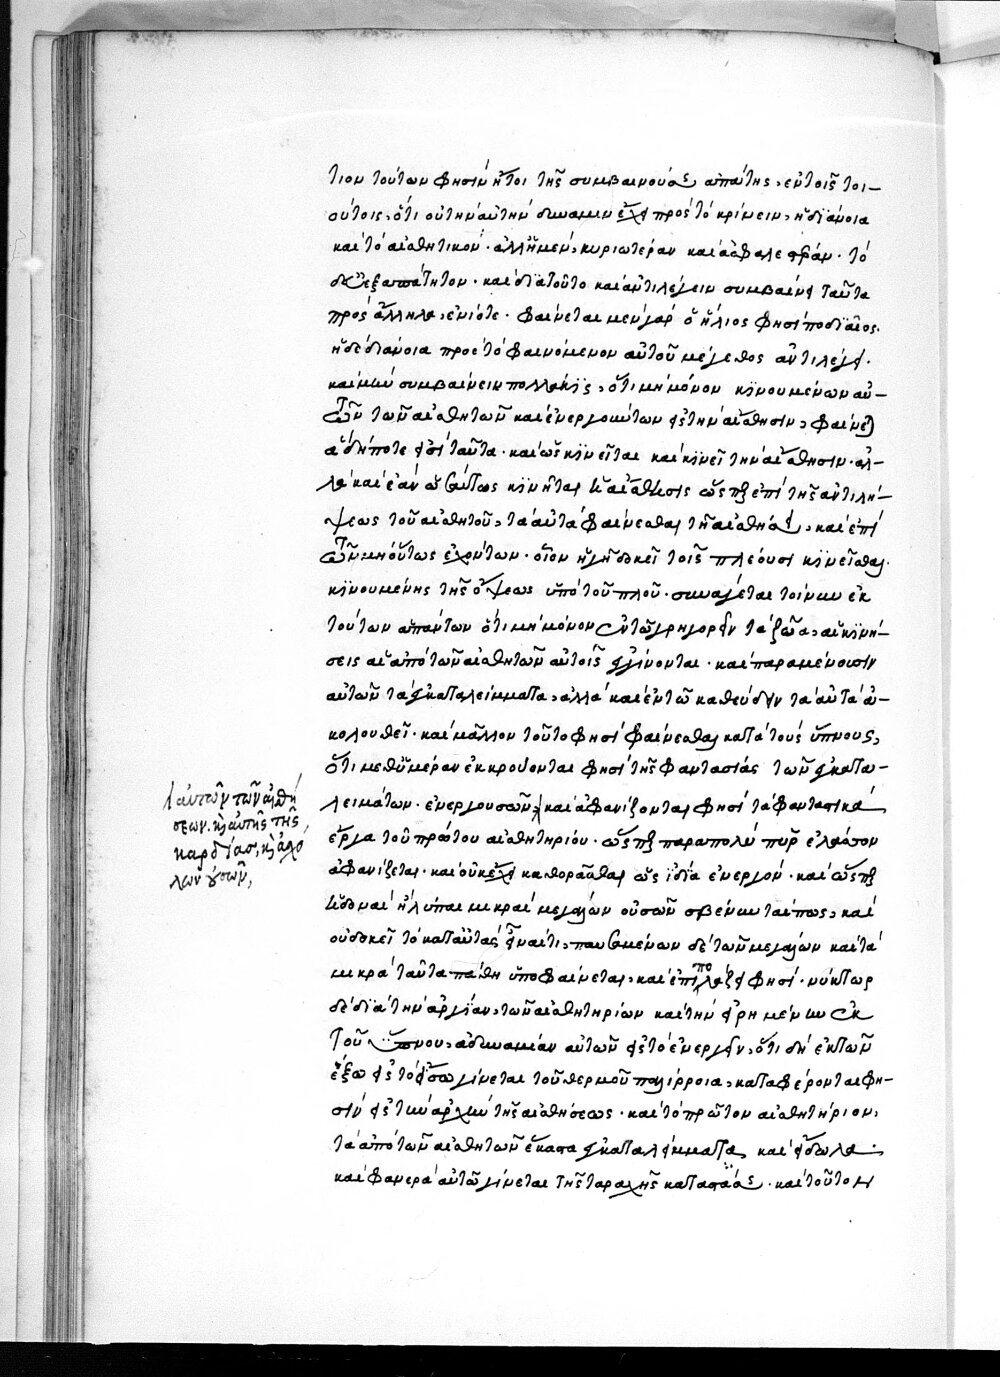 τιον τούτων φησὶν ἤτοι τῆς συμβαινούσης ἀπάτης, ἐν τοῖς τοι-
ούτοις, ὅτι οὐ τὴν αὐτὴν δύναμιν ἔχει πρὸς τὸ κρίνειν, ἡ διάνοια
καὶ τὸ αἰσθητικόν· ἀλλ' ἡ μὲν, κυριωτέραν καὶ ἀσφαλεστέραν· τὸ
δὲ εὐεξαπάτητον· καὶ διατοῦτο καὶ ἀντιλέγειν συμβαίνει ταῦτα
πρὸς ἄλληλα, ἐνίοτε· φαίνεται μὲν γὰρ ὁ ἥλιος φησὶ ποδιαῖος·
ἡ δὲ διάνοια πρὸς τὸ φαινόμενον αὐτοῦ μέγεθος ἀντιλέγει·
καὶ μὴν συμβαίνειν πολλάκις, ὅτι μὴ μόνον κινουμένων αὐ-
τῶν τῶν αἰσθητῶν καὶ ἐνεργούντων εἰς τὴν αἴσθησιν, φαίνεται
ἃ δήποτε εἰσὶ ταῦτα· καὶ ὡς κινεῖται καὶ κινεῖ τὴν αἴσθησιν· ἀλ-
λὰ καὶ ἐὰν ὡσαύτως κινῆται ἡ αἴσθησις ὥσπερ ἐπὶ τῆς ἀντιλή-
ψεως τοῦ αἰσθητοῦ, τὰ αὐτὰ φαίνεσθαι τῇ αἰσθήσει, καὶ ἐπὶ
τῶν μὴ οὕτως ἐχόντων· οἷον ἡ γῆ δοκεῖ τοῖς πλέουσι κινεῖσθαι·
κινουμένης τῆς ὄψεως ὑπὸ τοῦ πλοῦ· συνάγεται τοίνυν ἐκ
τούτων ἁπάντων ὅτι μὴ μόνον ἐν τῷ ἐγρηγορέναι τὰ ζῶα, αἱ κινή-
σεις αἱ ἀπὸ τῶν αἰσθητῶν αὐτοῖς ἐγγίνονται· καὶ παραμένουσιν
αὐτῶν τὰ ἐγκαταλείμματα, ἀλλὰ καὶ ἐν τῷ καθεύδειν τὰ αὐτὰ ἀ-
κολουθεῖ· καὶ μᾶλλον τοῦτο φησὶ φαίνεσθαι κατὰ τοὺς ὕπνους,
ὅτι μεθ' ἡμέραν ἐκκρούονται φησὶ τῆς φαντασίας τῶν ἐγκατα-
λειμάτων· ἐνεργουσῶν, καὶ ἀφανίζονται φησὶ τὰ φανταστικὰ
ἔργα τοῦ πρώτου αἰσθητηρίου· ὥσπερ παραπολὺ πῦρ ἔλαττον
ἀφανίζεται· καὶ οὐκ ἔχει καθορᾶσθαι ὡς ἰδία ἐνεργόν· καὶ ὥσπερ
ἡδοναὶ ἢ λύπαι μικραὶ μεγάλων οὐσῶν σβέννυνταί πως, καὶ
οὐ δοκεῖ τὸ κατ' αὐτὰς εἶναί τι, παυσαμένων δὲ τῶν μεγάλων καὶ τὰ
μικρὰ ταῦτα πάθη ὑποφαίνεται, καὶ ἐπιπολάζει φησί· νύκτωρ
δὲ διὰ τὴν ἀργίαν, τῶν αἰσθητηρίων καὶ τὴν εἰρημένην ἐκ
τοῦ ὕπνου, ἀδυναμίαν αὐτῶν εἰς τὸ ἐνεργεῖν, ὅτι δὴ ἐκ τῶν
ἔξω εἰς τὸ εἴσω γίνεται τοῦ θερμοῦ παλίρροια, καταφέρονται φη-
σὶν εἰς τὴν ἀρχὴν τῆς αἰσθήσεως· καὶ τὸ πρῶτον αἰσθητήριον,
τὰ ἀπὸ τῶν αἰσθητῶν ἕκαστα ἐγκαταλείμματα καὶ εἴδωλα·
καὶ φανερὰ αὐτῷ γίνεται τῆς ταραχῆς καταστάσης· καὶ τοῦτον
αὐτῶν τῶν αἰσθή
σεων. καὶ αὐτῆς τῆς
καρδίας,